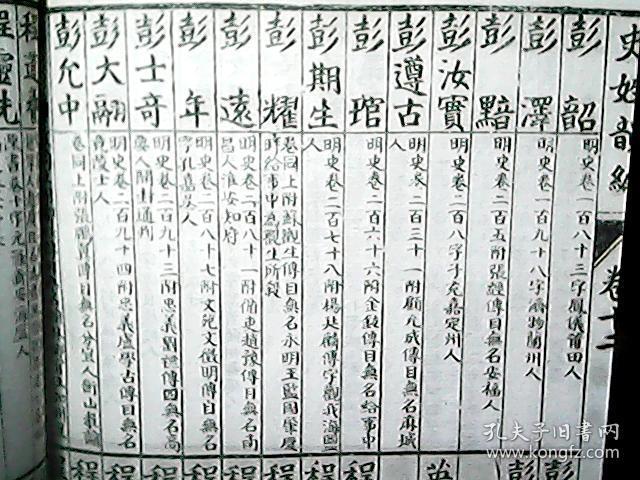 史姓韻編
卷十三
彭韶
明史卷一百八十三字鳳儀莆田人
彭澤
明史卷一百九十八字濟物蘭州人
彭黯
明史卷二百五附張經傳目無名安福人
彭汝實
明史卷二百八字子充嘉定州人
彭遵古
明史卷二百三十一附顧允成傳目無名麻城
人
彭琯
明史卷二百六十六附金鉉傳目無名給事中
彭期生
明史卷二百七十八附楊廷麟傳字觀我海鹽
人
彭耀
卷同上附蘇觀生傳目無名永明王監國肇慶
時給事中為觀生所殺
彭遠
明史卷二百八十一附循吏趙豫傳目無名南
昌人淮安知府
彭年
明史卷二百八十七附文苑文徵明傳目無名
字孔嘉吳人
彭士奇
明史卷二百九十三附忠義傳目無名高
要人開封通判
彭大翮
明史卷二百九十四附忠義盧學古傳目無名
竟陵士人
彭允中
卷同上附張鵬翼傳目無名
程靈洗
彭
彭
程
程
程
程
程
程
孔夫子旧书网
www.kongfz.com